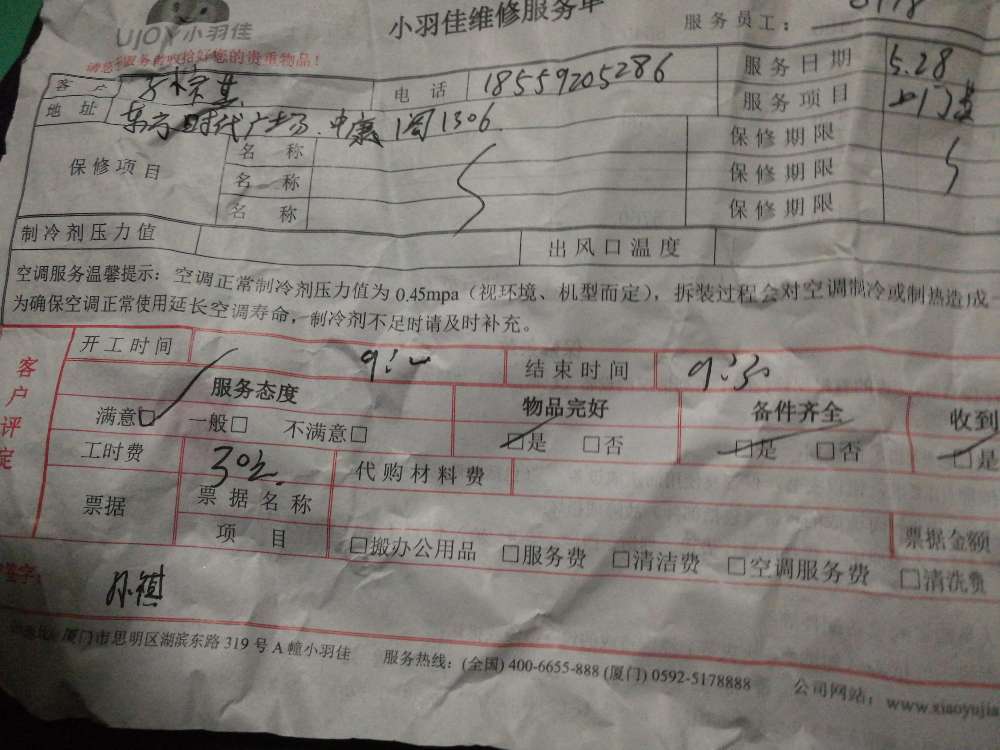 UJOY小羽佳
小羽佳维修服务单
服务员工：
服务前请收拾好您的贵重物品！
客户
电话 18559205286
服务日期 5.28
地址 东方时代广场.中 阁1306
服务项目
保修项目
名称
保修期限
名称
保修期限
名称
保修期限
制冷剂压力值
出风口温度
空调服务温馨提示：空调正常制冷剂压力值为0.45mpa（视环境、机型而定），拆装过程会对空调制冷或制热造成
为确保空调正常使用延长空调寿命，制冷剂不足时请及时补充。
客户评定
开工时间
结束时间 9:30
服务态度
物品完好
备件齐全
收到
满意□ 一般□ 不满意□
□是 □否
□是 □否
□是
工时费
代购材料费
票据
票据名称
票据金额
项目
□搬办公用品 □服务费 □清洁费 □空调服务费 □清洗费
签字：
厦门市思明区湖滨东路319号A幢小羽佳 服务热线：(全国) 400-6655-888 (厦门) 0592-5178888 公司网站：www.xiaoyujia